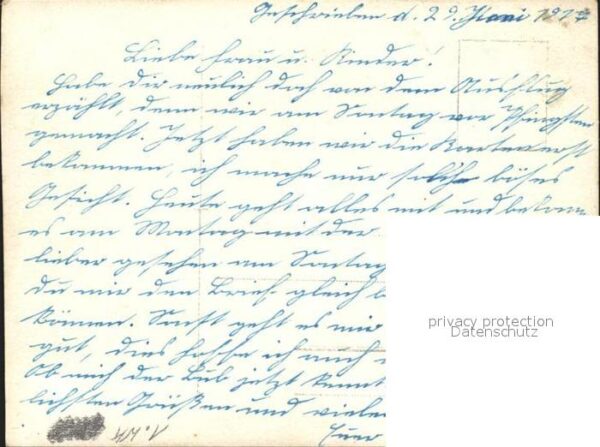 Geschrieben d. 29. Juni 1917
Liebe Frau u. Kinder!
Habe Dir neulich doch von dem Ausflug
erzählt, denn wir am Sonntag vor Pfingsten
gemacht. Jetzt haben wir die Karten erst
bekommen, ich mache nur solch böses
Gesicht. Heute geht alles mit und bekam
es am Montag mit der
lieber gesehen am Sonntag
du mir den Brief gleich
können. Sonst geht es mir
gut, dies hoffe ich auch
Ob mich der Bub jetzt kennt
lichsten Grüßen und viele
Euer
privacy protection
Datenschutz